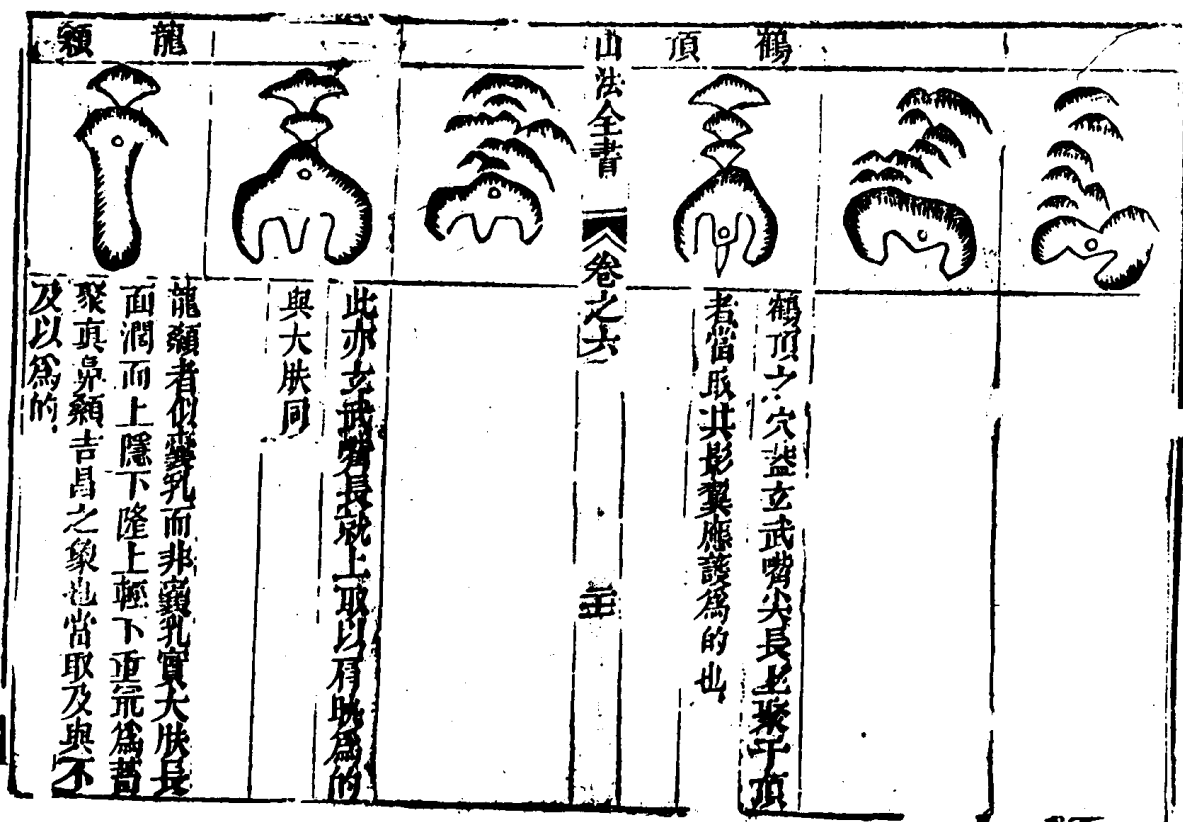 鶴頂
鶴頂之穴葢玄武嘴尖長上聚于頂
者當取其影翼應護爲的也
山法全書
卷之六
龍顙
此亦玄武嘴長就上取以脣毬爲的
與大肤同
龍顙者似懸乳而非懸乳實大肤長
面濶而上隱下隆上輕下重是爲蓄
聚真鼻顙吉昌之象也當取及與不
及以爲的